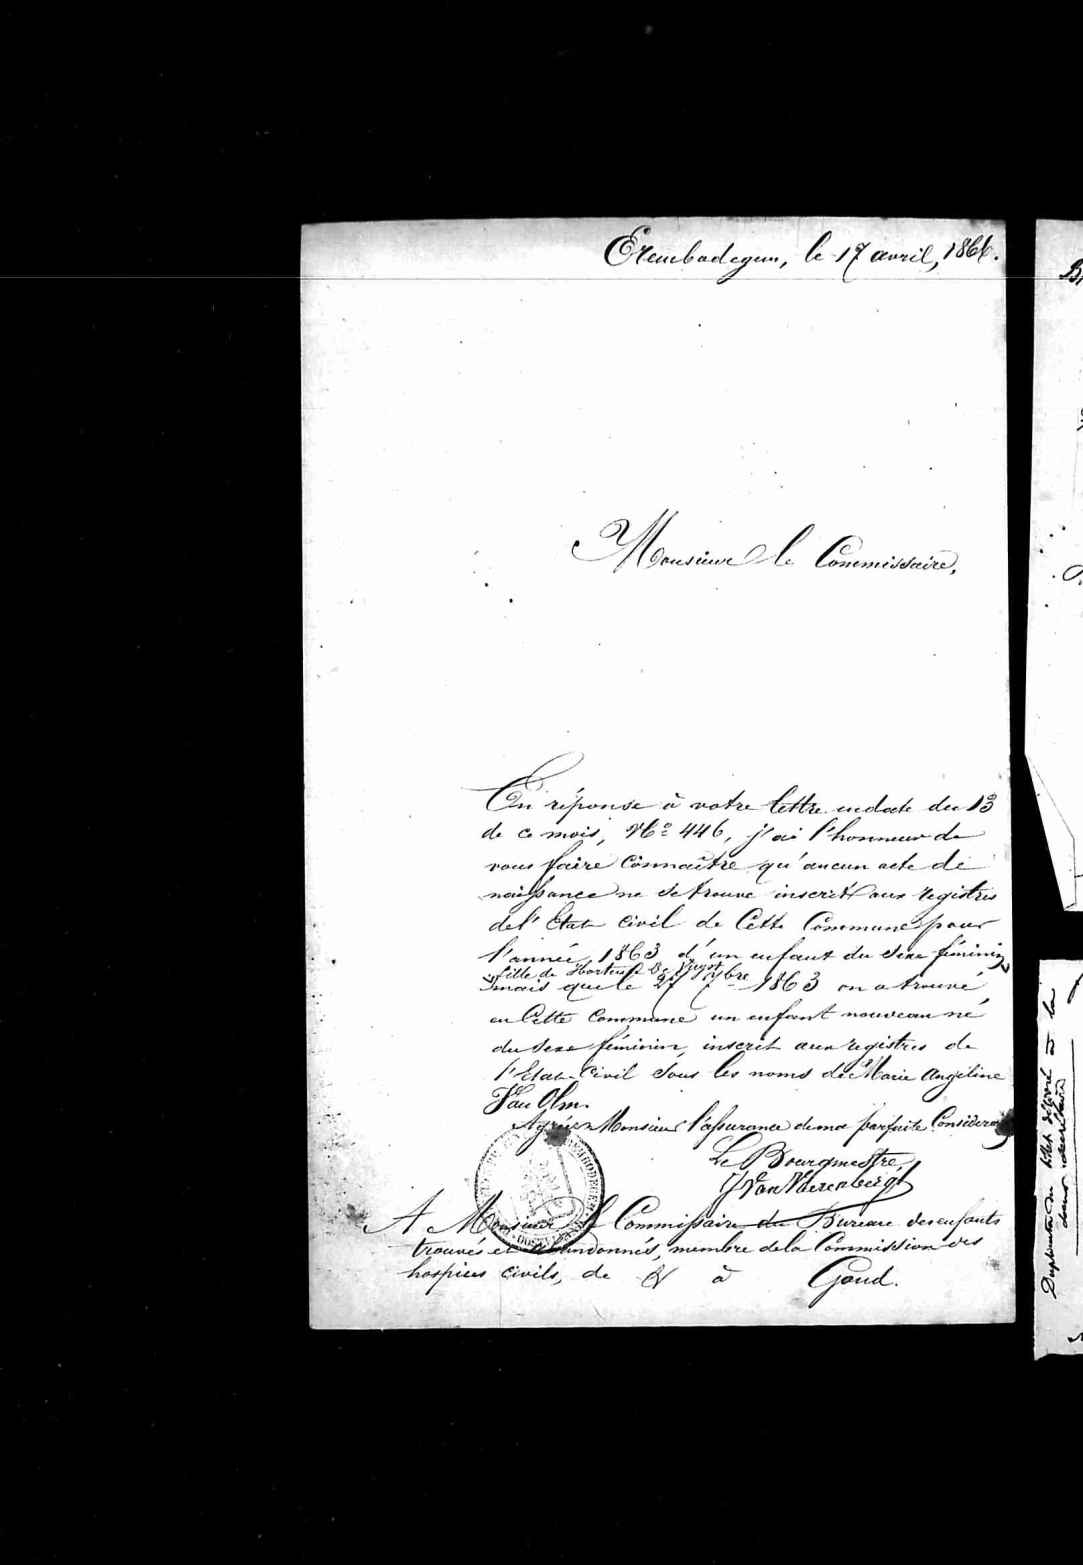 Erembodegem, le 17 avril, 1866.
Monsieur le Commissaire,
En réponse à votre lettre en date du 13
de ce mois, No 446, j'ai l'honneur de
vous faire connaître qu'aucun acte de
naissance ne se trouve inscrit aux registres
de l'Etat civil de Cette Commune pour
l'année 1863 d'un enfant du sexe féminin
fille de Hortense De
mais que le 27 7bre 1863 on a trouvé
en Cette Commune un enfant nouveau né
du sexe féminin, inscrit aux registres de
l'Etat-Civil sous les noms de Marie Angéline
Van Olm.
Agréez Monsieur l'assurance de ma parfaite Considération
Le Bourgmestre,
A Monsieur le Commissaire du Bureau des enfants
trouvés et abandonnés, membre de la Commission des
hospices civils, de & à Gand.
Duplicata du billet délivré à la